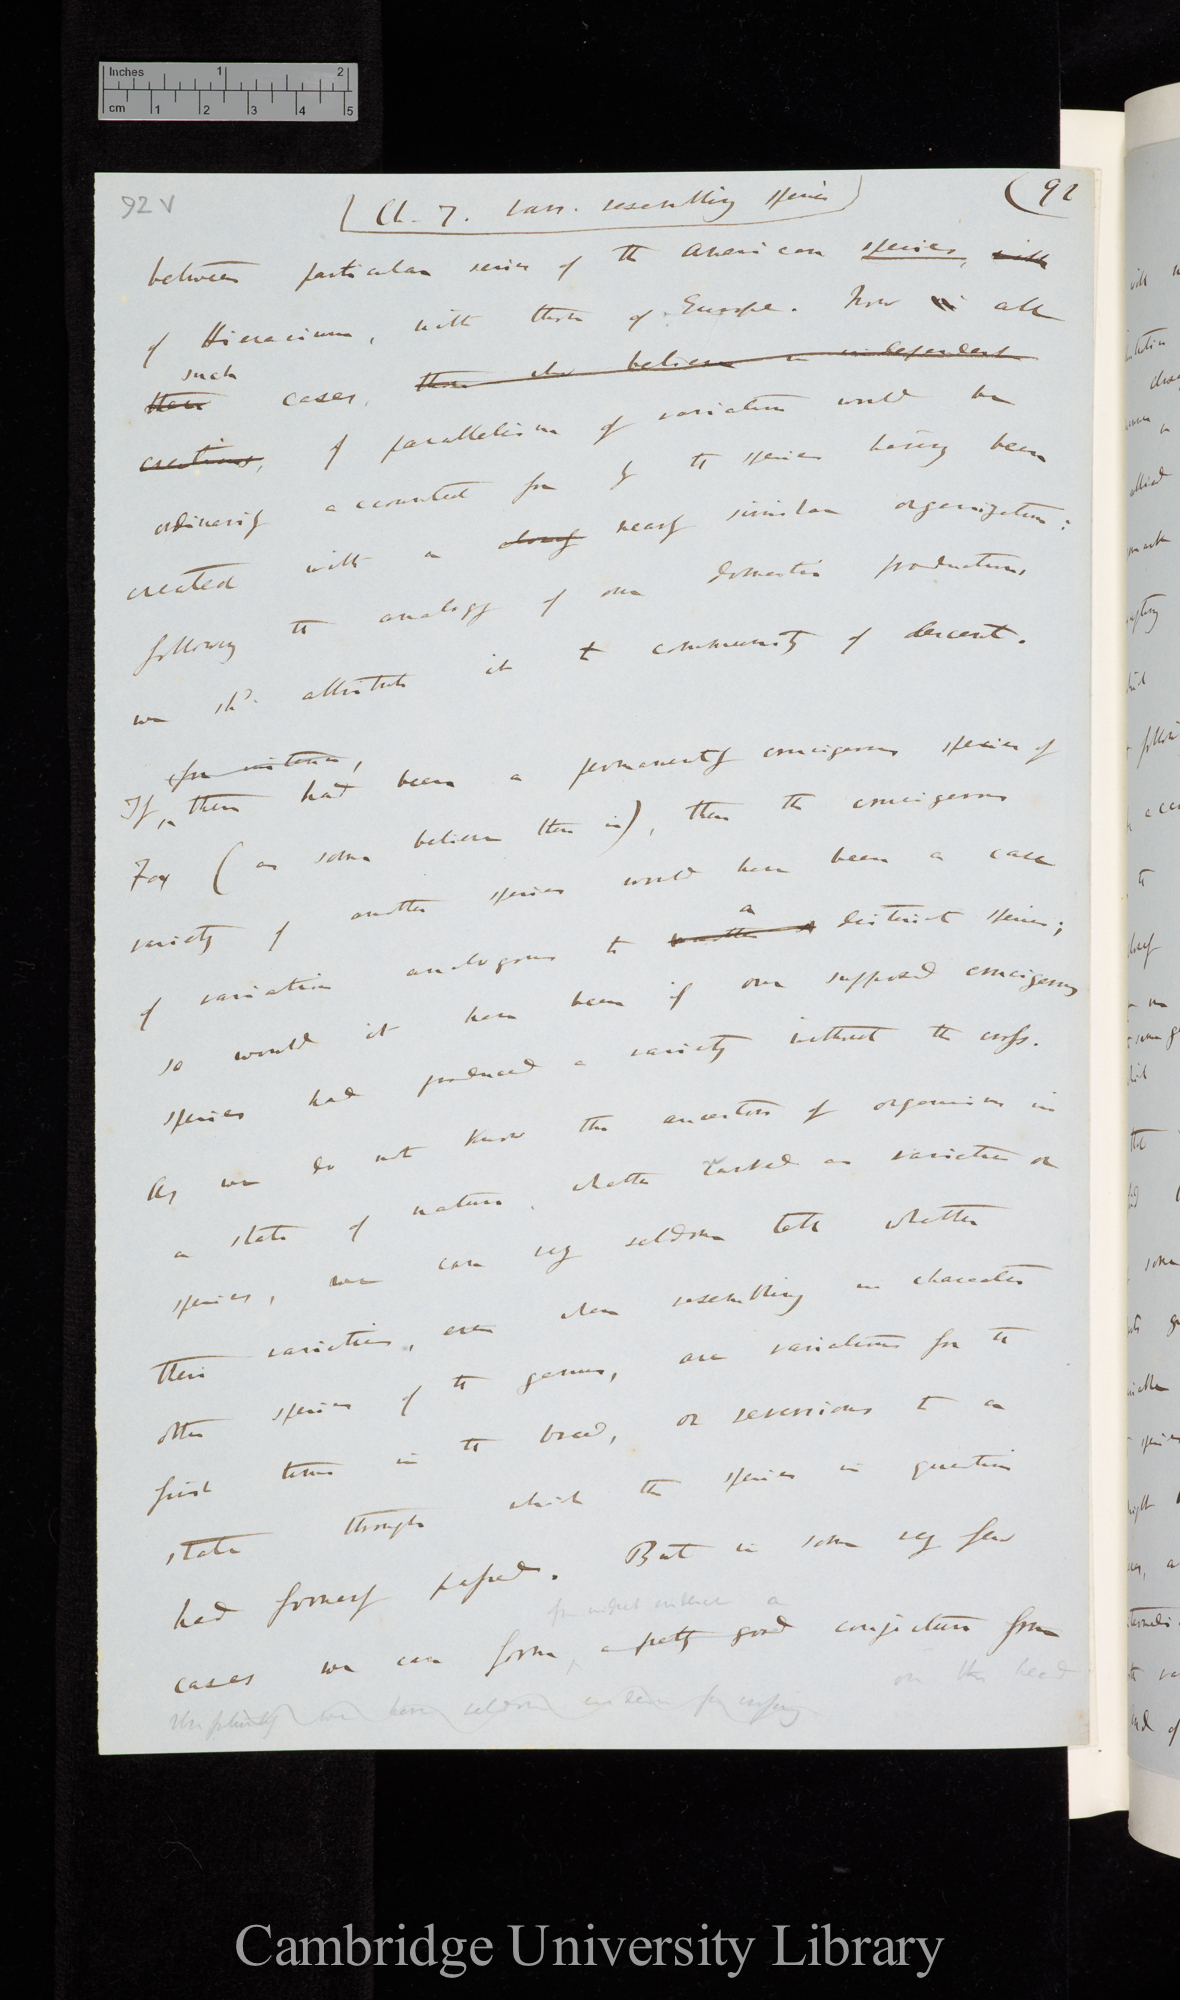 Inches 1 2
cm 1 2 3 4 5
92 v
Ch. 7. Vars. resembling species
(92
between particular series of the American species, with
of Hieracium, with those of Europe. Now in all
such
these cases, those who believe in independent
creations, of parallelism of variation would be
ordinarily accounted for by the species having been
created with a closely nearly similar organization:
following the analogy of our domestic productions
we shd. attribute it to community of descent.
for instance,
If there had been a permanently crucigerous species of
Fox (as some believe there is), then the crucigerous
variety of another species would have been a case
a
of variation analogous to another distinct species;
so would it have been if our supposed crucigerous
species had produced a variety without the cross.
As we do not know the ancestors of organisms in
a state of nature, whether ranked as varieties or
species, we can very seldom tell whether
their varieties, even when resembling in character
other species of the genus, are variations for the
first time in the breed, or reversions to a
state through which the species in question
had formerly passed. But in some very few
a
cases we can form, a pretty good conjecture from
on this head
we have seldom evidence for
Cambridge University Library